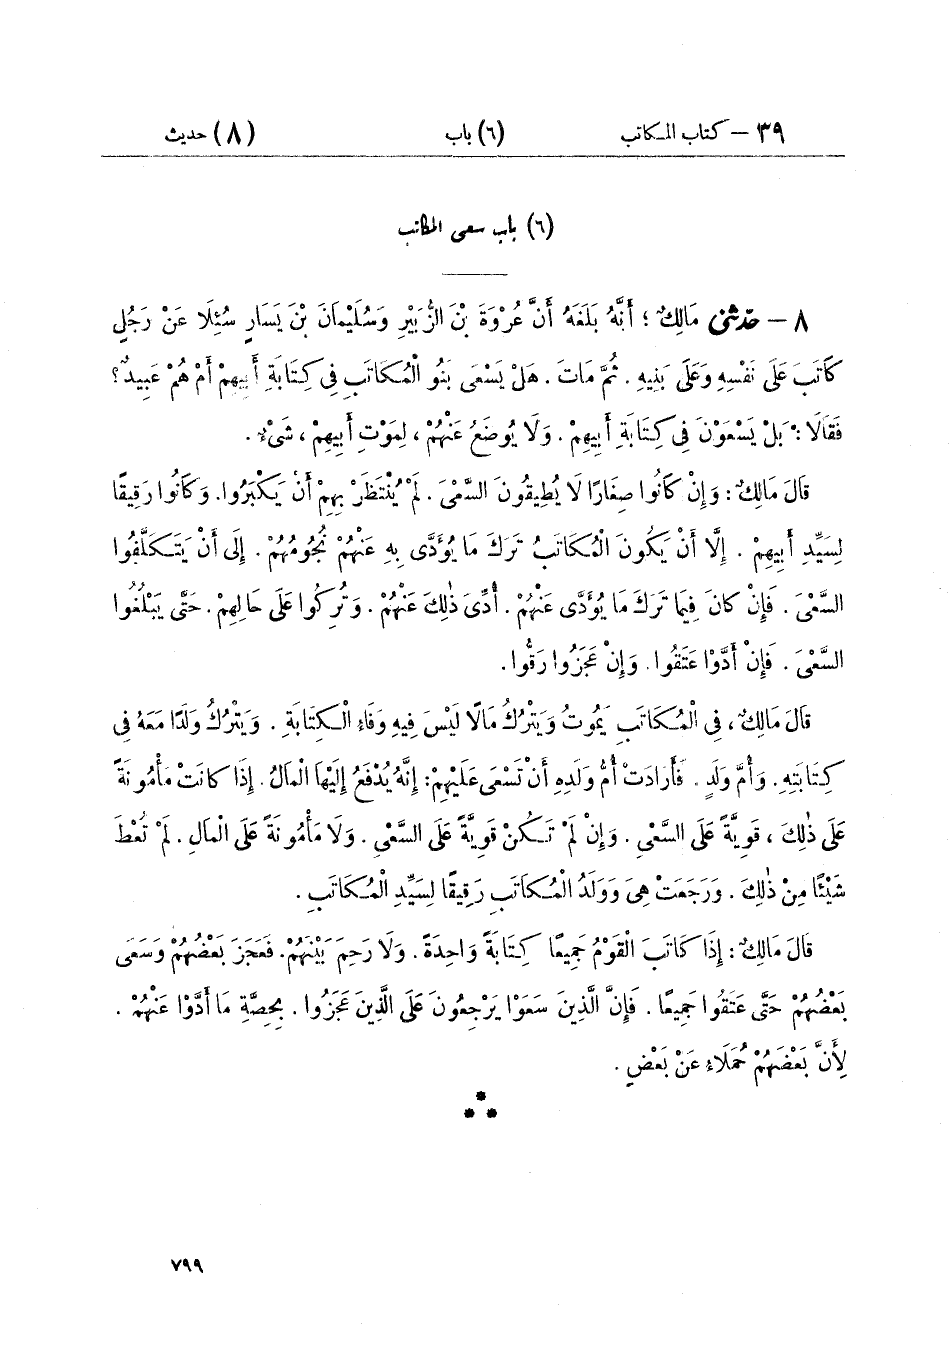 ٣٩ – كتاب المكاتب (٦) باب (٨) حديث
(٦) باب سعى المكاتب
٨ – حَدَّثَنِى مَالِكٌ؛ أَنَّهُ بَلَغَهُ أَنَّ عُرْوَةَ بْنَ الزُّبَيْرِ وَسُلَيْمَانَ بْنَ يَسَارٍ سُئِلَا عَنْ رَجُلٍ
كَاتَبَ عَلَى نَفْسِهِ وَعَلَى بَنِيهِ. ثُمَّ مَاتَ. هَلْ يَسْعَى بَنُو الْمُكَاتَبِ فِى كِتَابَةِ أَبِيهِمْ أَمْ هُمْ عَبِيدٌ؟
فَقَالَا: بَلْ يَسْعَوْنَ فِى كِتَابَةِ أَبِيهِمْ. وَلَا يُوضَعُ عَنْهُمْ، لِمَوْتِ أَبِيهِمْ، شَىْءٌ.
قَالَ مَالِكٌ: وَإِنْ كَانُوا صِغَارًا لَا يُطِيقُونَ السَّعْىَ. لَمْ يُنْتَظَرْ بِهِمْ أَنْ يَكْبَرُوا. وَكَانُوا رَقِيقًا
لِسَيِّدِ أَبِيهِمْ. إِلَّا أَنْ يَكُونَ الْمُكَاتَبُ تَرَكَ مَا يُؤَدَّى بِهِ عَنْهُمْ نُجُومُهُمْ. إِلَى أَنْ يَتَكَلَّفُوا
السَّعْىَ. فَإِنْ كَانَ فِيمَا تَرَكَ مَا يُؤَدَّى عَنْهُمْ. أُدِّىَ ذٰلِكَ عَنْهُمْ. وَتُرِكُوا عَلَى حَالِهِمْ. حَتَّى يَبْلُغُوا
السَّعْىَ. فَإِنْ أَدَّوْا عَتَقُوا. وَإِنْ عَجَزُوا رَقُّوا.
قَالَ مَالِكٌ، فِى الْمُكَاتَبِ يَمُوتُ وَيَتْرُكُ مَالًا لَيْسَ فِيهِ وَفَاءُ الْكِتَابَةِ. وَيَتْرُكُ وَلَدًا مَعَهُ فِى
كِتَابَتِهِ. وَأُمَّ وَلَدٍ. فَأَرَادَتْ أُمُّ وَلَدِهِ أَنْ تَسْعَى عَلَيْهِمْ: إِنَّهُ يُدْفَعُ إِلَيْهَا الْمَالُ. إِذَا كَانَتْ مَأْمُونَةً
عَلَى ذٰلِكَ، قَوِيَّةً عَلَى السَّعْىِ. وَإِنْ لَمْ تَكُنْ قَوِيَّةً عَلَى السَّعْىِ. وَلَا مَأْمُونَةً عَلَى الْمَالِ. لَمْ تُعْطَ
شَيْئًا مِنْ ذٰلِكَ. وَرَجَعَتْ هِىَ وَوَلَدُ الْمُكَاتَبِ رَقِيقًا لِسَيِّدِ الْمُكَاتَبِ.
قَالَ مَالِكٌ: إِذَا كَاتَبَ الْقَوْمُ جَمِيعًا كِتَابَةً وَاحِدَةً. وَلَا رَحِمَ بَيْنَهُمْ. فَعَجَزَ بَعْضُهُمْ وَسَعَى
بَعْضُهُمْ حَتَّى عَتَقُوا جَمِيعًا. فَإِنَّ الَّذِينَ سَعَوْا يَرْجِعُونَ عَلَى الَّذِينَ عَجَزُوا. بِحِصَّةِ مَا أَدَّوْا عَنْهُمْ.
لِأَنَّ بَعْضَهُمْ حُمَلَاءُ عَنْ بَعْضٍ.
٧٩٩